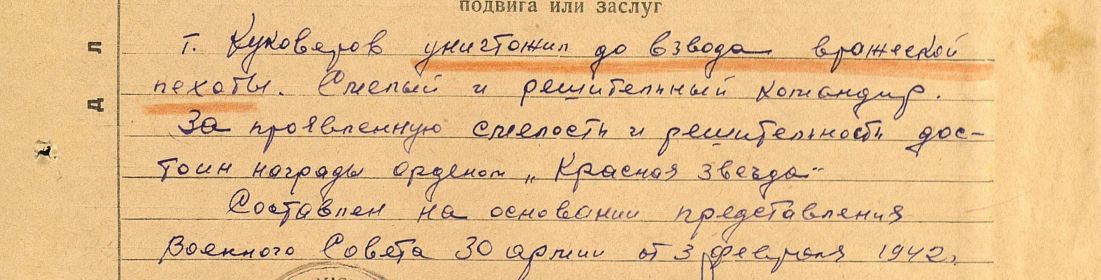 подвига или заслуг
Л
Д
т. Куковеров уничтожил до взвода вражеской
пехоты. Смелый и решительный командир.
За проявленную смелость и решительность дос-
тоин награды орденом „Красная звезда"
Составлен на основании представления
Военного Совета 30 армии от 3 февраля 1942.